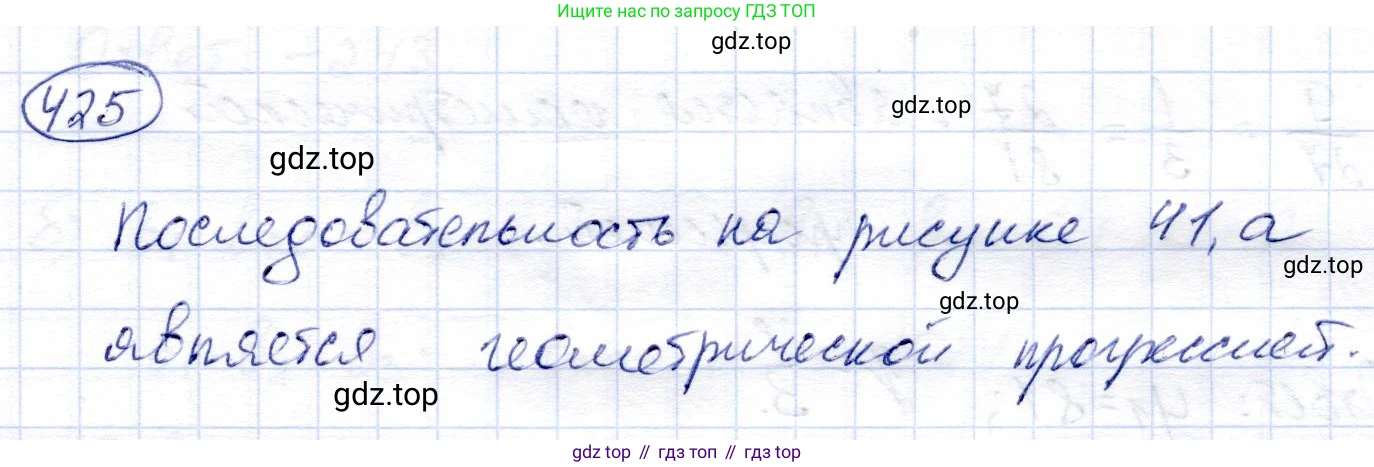 Ищите нас по запросу ГДЗ ТОП
gdz.top
425
gdz.top
gdz.top
Последовательность на рисунке 41, а
gdz.top
gdz.top
является геометрической прогрессией.
gdz.top
gdz.top // гдз топ // гдз top